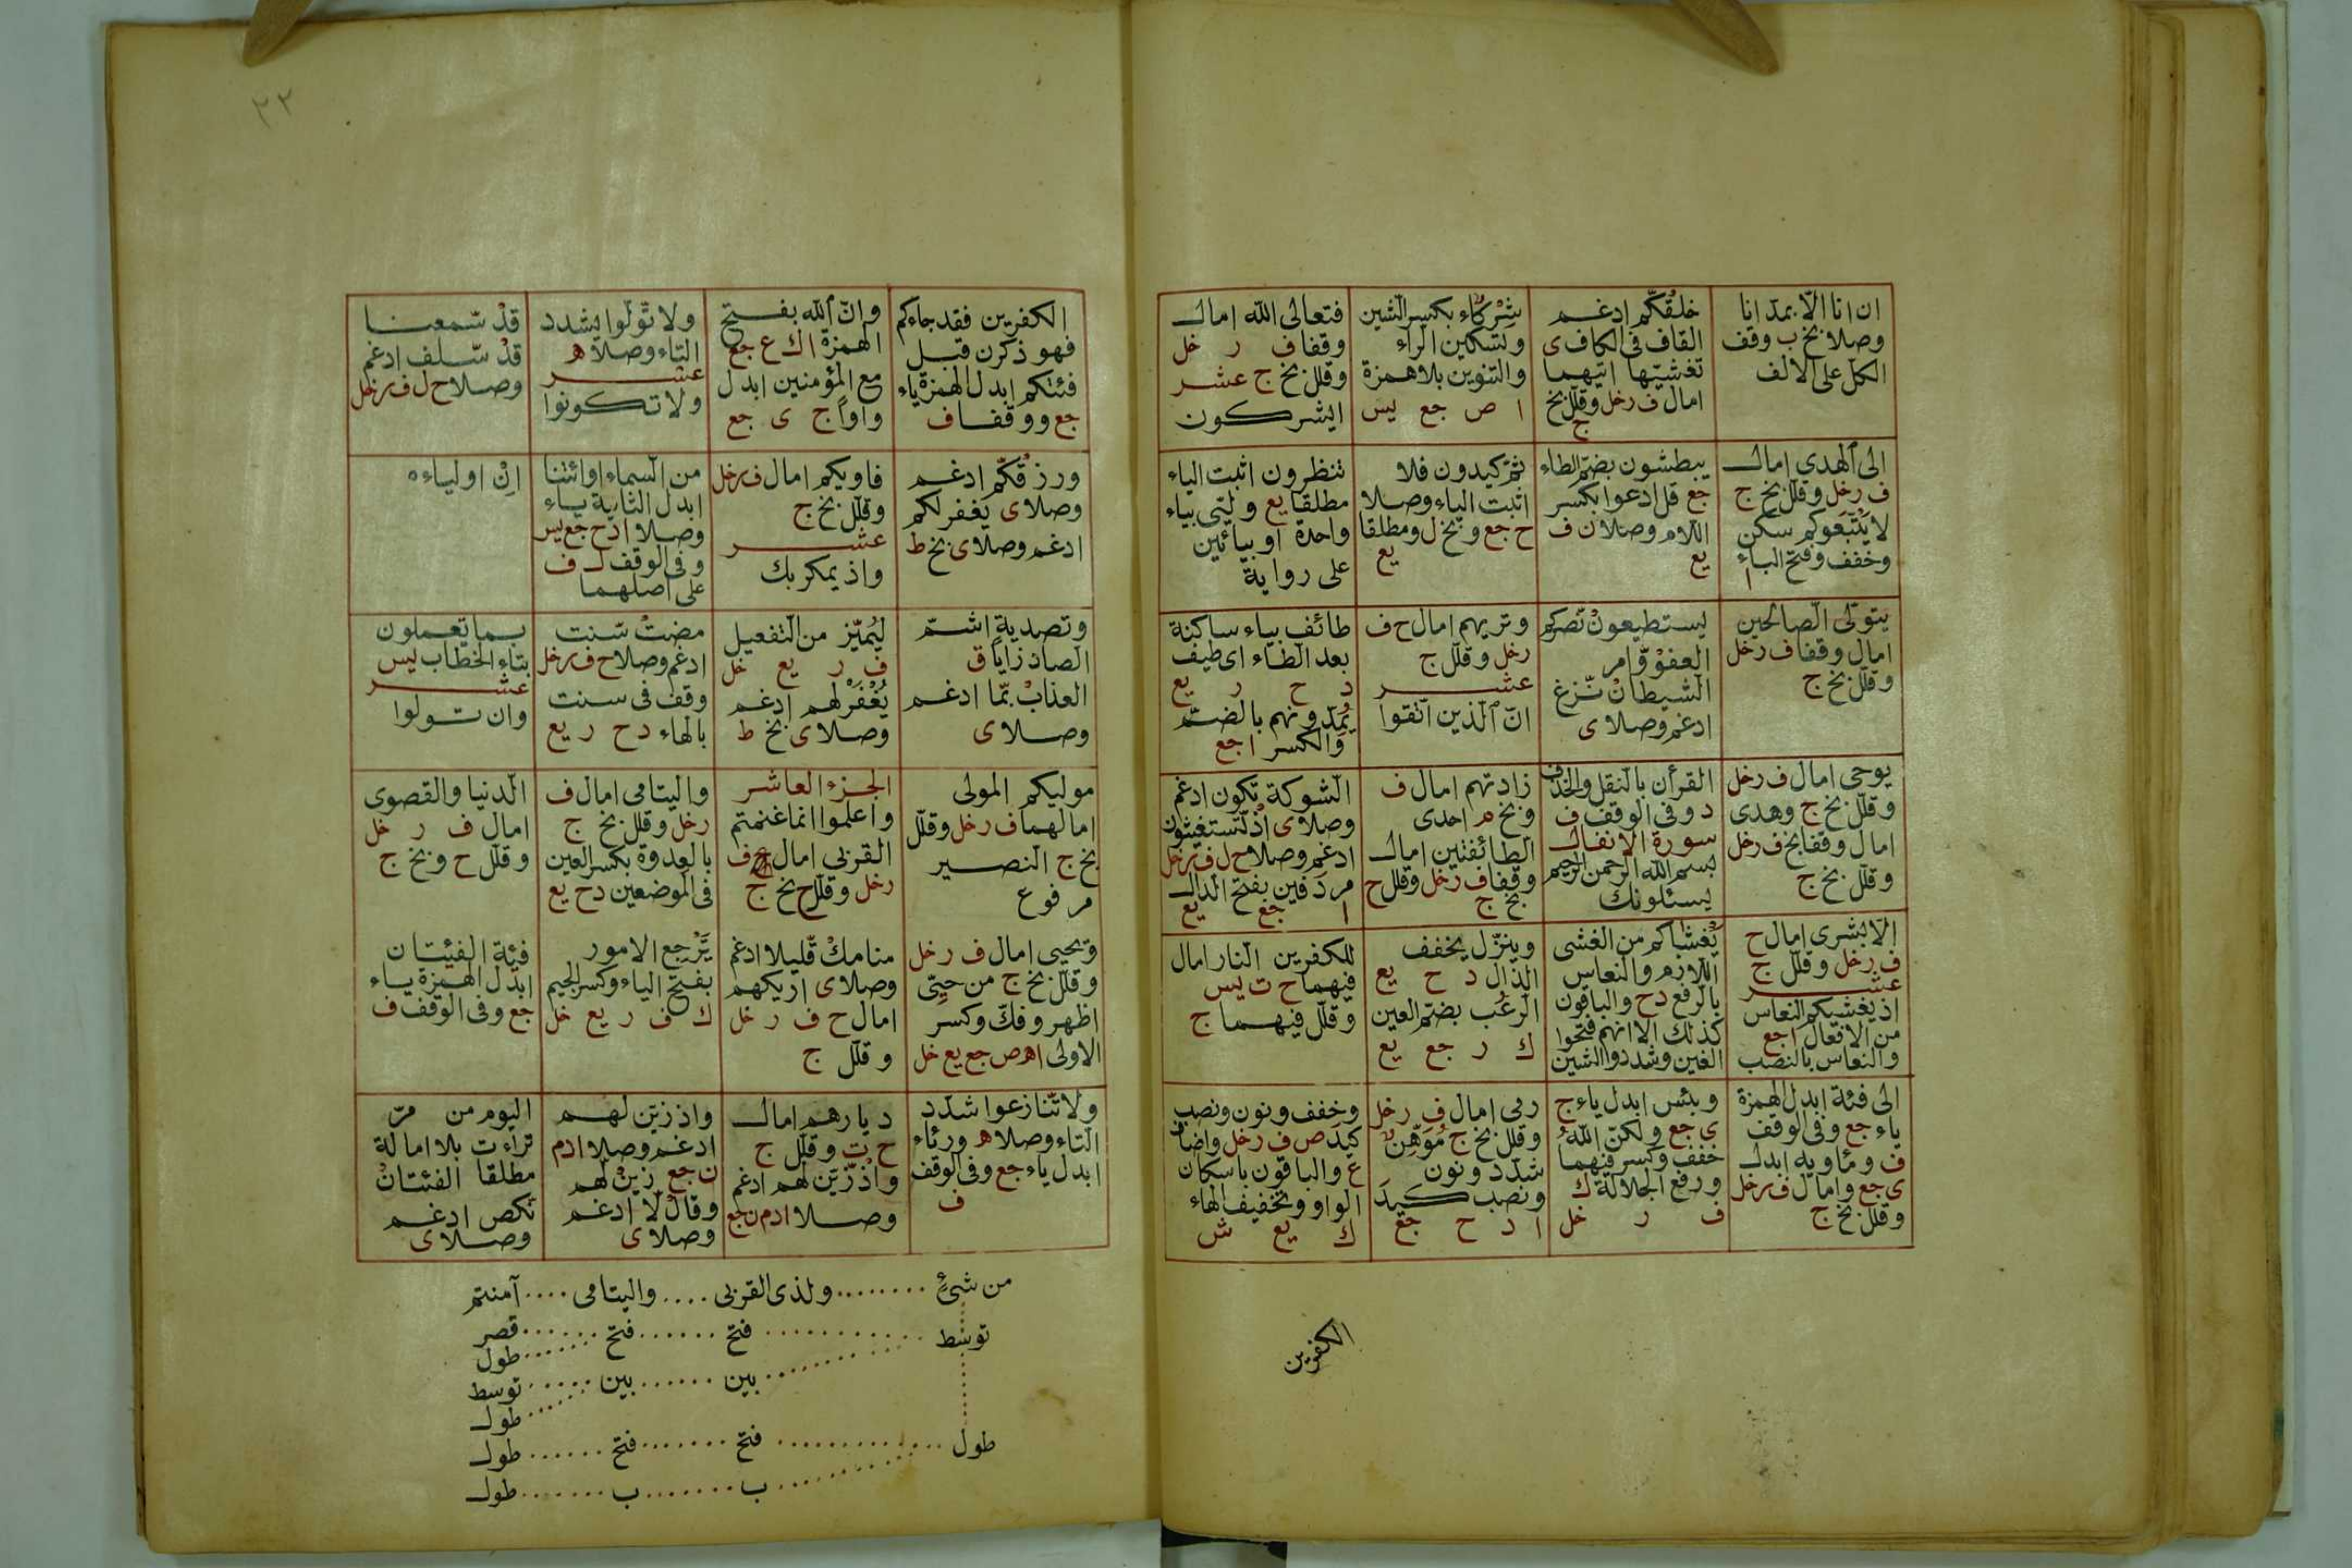 ان انا الّا بمدّ انا
وصلا بخ ب وقف
الكل على الالف
خلقكّم ادغم
القاف فى الكاف ى
تغشيّها اتيهما
امال ف رخل وقلّل بخ
ج
شركاء بكسر الشين
وتسكين الراء
والتنوين بلا همزة
ا ص جع ليس
فتعالى الله امال
وقفا ف ر خل
وقلّل بخ ج عشر
ايشركون
الى الهدى امال
ف رخل وقلّل بخ ج
لا يتبعوكم سكن
وخفف وفتح الباء
ا
يبطشون بضم الطاء
جع قل ادعوا بكسر
اللام وصلا ن ف
يع
ثم كيدون فلا
اثبت الياء وصلا
ح جع وبخ ل ومطلقا
يع
تنظرون اثبت الياء
مطلقا يع ولتى بياء
واحدة او بيائين
على رواية
يتولى الصالحين
امال وقفا ف رخل
وقلّل بخ ج
يستطيعون نصركم
العفو وّامر
الشيطان نّزغ
ادغم وصلا ى
وتريهم امال ح ف
رخل وقلّل ج
عشر
انّ الّذين اتقوا
طائف بياء ساكنة
بعد الطاء اى طيف
د ح ر يع
يمدونهم بالضم
والكسر ا جع
يوحى امال ف رخل
وقلّل بخ ج وهدى
امال وقفا بخ ف رخل
وقلّل بخ ج
القرأن بالنقل والحذف
د وفى الوقف ف
سورة الانفال
بسم الله الرحمن الرحيم
يسئلونك
زادتهم امال ف
وبخ م احدى
الطائفتين امال
وقفا ف رخل وقلل ح
بخ ج
الشوكة تّكون ادغم
وصلا ى اذ تّستغيثون
ادغم وصلا ح ل ف رخل
مردفين بفتح الدال
ا جع يع
الّا بشرى امال ح
ف رخل وقلّل ج
عشر
اذ يغشيكم النعاس
من الافعال ا جع
والنعاس بالنصب
يغشاكم من الغشى
اللازم والنعاس
بالرفع د ح والباقون
كذلك الا انهم فتحوا
الغين وشددوا الشين
وينزّل يخفف
الذال د ح يع
الرعب بضم العين
ك ر جع يع
للكفرين النار امال
فيهما ح ت يس
وقلّل فيهما ج
الى فئة ابدل الهمزة
ياء جع وفى الوقف
ف ومأويه ابدل
ى جع وامال ف رخل
وقلّل بخ ج
وبئس ابدل ياء ج
ى جع ولكنّ الله
خفف وكسر فيهما
ورفع الجلالة ك
ف ر خل
رمى امال ف رخل
وقلل بخ ج موهن
شدّد ونون
ونصب كيد
ا د ح جع
وخفف ونون ونصب
كيد ص ف رخل واضاف
ع والباقون باسكان
الواو وتخفيف الهاء
ك يع ش
الكفرين
٢٢
الكفرين فقد جاءكم
فهو ذكرن قبل
فئتكم ابدل الهمزة ياء
جع ووقفا ف
وانّ الله بفتح
الهمزة ا ك ع جع
مع المؤمنين ابدل
واواً ج ى جع
ولا تّولوا يشدد
التاء وصلا ه
عشر
ولا تكونوا
قد سّمعنا
قد سّلف ادغم
وصلا ح ل ف رخل
ورزقكّم ادغم
وصلا ى يغفر لكم
ادغم وصلا ى بخ ط
فاويكم امال ف رخل
وقلّل بخ ج
عشر
واذ يمكر بك
من السماء اوائتنا
ابدل الثانية ياء
وصلا ا د ح جع يس
وفى الوقف ل ف
على اصلهما
ان اولياءه
وتصدية اشمّ
الصاد زاياً ق
العذاب بّما ادغم
وصلا ى
ليميّز من التفعيل
ف ر يع خل
يغفر لهم ادغم
وصلا ى بخ ط
مضت سّنت
ادغم وصلا ح ف رخل
وقف فى سنت
بالهاء د ح ر يع
بما تعملون
بتاء الخطاب ليس
عشر
وان تولوا
موليكم المولى
امالهما ف رخل وقلّل
بخ ج النصير
مرفوع
الجزء العاشر
واعلموا انما غنمتم
القربى امال ف
رخل وقلّل ح بخ ج
واليتامى امال ف
رخل وقلل بخ ج
بالعدوة بكسر العين
فى الموضعين د ح يع
الدنيا والقصوى
امال ف ر خل
وقلّل ح وبخ ج
ويحيى امال ف رخل
وقلّل بخ ج من حيّى
اظهر وفكّ وكسر
الاولى ا ه ص جع يع خل
منامك قّليلا ادغم
وصلا ى اريكهم
امال ح ف ر خل
وقلل ج
ترجع الامور
بفتح الياء وكسر الجيم
ك ف ر يع خل
فئة الفيئتان
ابدل الهمزة ياء
جع وفى الوقف ف
ولا تّنازعوا شدّد
التاء وصلا ه ورئاء
ابدل ياء جع وفى الوقف
ف
ديارهم امال
ح ت وقلّل ج
واذ زّين لهم ادغم
وصلا ا د م ن جع
واذ زيّن لهم
ادغم وصلا ا د م
ن جع زين لّهم
وقال لّا ادغم
وصلا ى
اليوم من مرّ
تراءت بلا امالة
مطلقا الفئتان
نّكص ادغم
وصلا ى
من شئ ........ ولذى القربى .... واليتامى .... آمنتم
توسط ........ فتح ...... فتح ...... قصر
طول
بين ...... بين ...... توسط
طول
طول ........ فتح ...... فتح ...... طول
ب ...... ب ...... طول